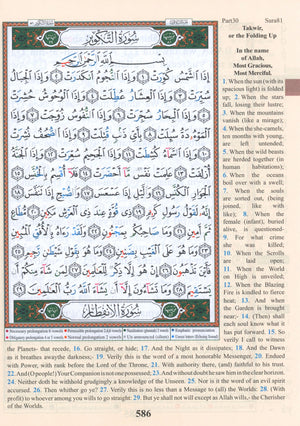 Part30 Sura81
سُورَةُ التَّكْوِيرِ
بِسْمِ اللَّهِ الرَّحْمَٰنِ الرَّحِيمِ
إِذَا الشَّمْسُ كُوِّرَتْ ١ وَإِذَا النُّجُومُ انكَدَرَتْ ٢ وَإِذَا الْجِبَالُ
سُيِّرَتْ ٣ وَإِذَا الْعِشَارُ عُطِّلَتْ ٤ وَإِذَا الْوُحُوشُ حُشِرَتْ ٥
وَإِذَا الْبِحَارُ سُجِّرَتْ ٦ وَإِذَا النُّفُوسُ زُوِّجَتْ ٧ وَإِذَا الْمَوْءُودَةُ
سُئِلَتْ ٨ بِأَيِّ ذَنبٍ قُتِلَتْ ٩ وَإِذَا الصُّحُفُ نُشِرَتْ ١٠ وَإِذَا السَّمَاءُ
كُشِطَتْ ١١ وَإِذَا الْجَحِيمُ سُعِّرَتْ ١٢ وَإِذَا الْجَنَّةُ أُزْلِفَتْ ١٣
عَلِمَتْ نَفْسٌ مَّا أَحْضَرَتْ ١٤ فَلَا أُقْسِمُ بِالْخُنَّسِ ١٥ الْجَوَارِ
الْكُنَّسِ ١٦ وَاللَّيْلِ إِذَا عَسْعَسَ ١٧ وَالصُّبْحِ إِذَا تَنَفَّسَ ١٨
إِنَّهُ لَقَوْلُ رَسُولٍ كَرِيمٍ ١٩ ذِي قُوَّةٍ عِندَ ذِي الْعَرْشِ مَكِينٍ ٢٠
مُّطَاعٍ ثَمَّ أَمِينٍ ٢١ وَمَا صَاحِبُكُم بِمَجْنُونٍ ٢٢ وَلَقَدْ رَآهُ بِالْأُفُقِ
الْمُبِينِ ٢٣ وَمَا هُوَ عَلَى الْغَيْبِ بِضَنِينٍ ٢٤ وَمَا هُوَ بِقَوْلِ شَيْطَانٍ
رَّجِيمٍ ٢٥ فَأَيْنَ تَذْهَبُونَ ٢٦ إِنْ هُوَ إِلَّا ذِكْرٌ لِّلْعَالَمِينَ ٢٧ لِمَن شَاءَ مِنكُمْ
أَن يَسْتَقِيمَ ٢٨ وَمَا تَشَاءُونَ إِلَّا أَن يَشَاءَ اللَّهُ رَبُّ الْعَالَمِينَ ٢٩
سُورَةُ الانْفِطَارِ
Takwir,
or the Folding Up
In the name
of Allah,
Most Gracious,
Most Merciful.
1. When the sun (with its
spacious light) is folded
up; 2. When the stars
fall, losing their lustre;
3. When the mountains
vanish (like a mirage);
4. When the she-camels,
ten months with young,
are left untended;
5. When the wild beasts
are herded together (in
human habitations);
6. When the oceans
boil over with a swell;
7. When the souls
are sorted out, (being
joined, like with
like); 8. When the
female (infant), buried
alive, is questioned-
9. For what crime
she was killed;
10. When the Scrolls
are laid open;
11. When the World
on High is unveiled;
12. When the Blazing
Fire is kindled to fierce
heat; 13. And when
the Garden is brought
near;- 14. (Then) shall
each soul know what it
has put forward. 15. So
verily I call to witness
the Planets- that recede, 16. Go straight, or hide; 17. And the Night as it dissipates; 18. And the Dawn
as it breathes away the darkness;- 19. Verily this is the word of a most honorable Messenger, 20. Endued
with Power, with rank before the Lord of the Throne, 21. With authority there, (and) faithful to his trust.
22. And (O people)! Your Companion is not one possessed; 23. And without doubt he saw him in the clear horizon.
24. Neither doth he withhold grudgingly a knowledge of the Unseen. 25. Nor is it the word of an evil spirit
accursed. 26. Then whither go ye? 27. Verily this is no less than a Message to (all) the Worlds: 28. (With
profit) to whoever among you wills to go straight: 29. But ye shall not will except as Allah wills,- the Cherisher
of the Worlds.
586